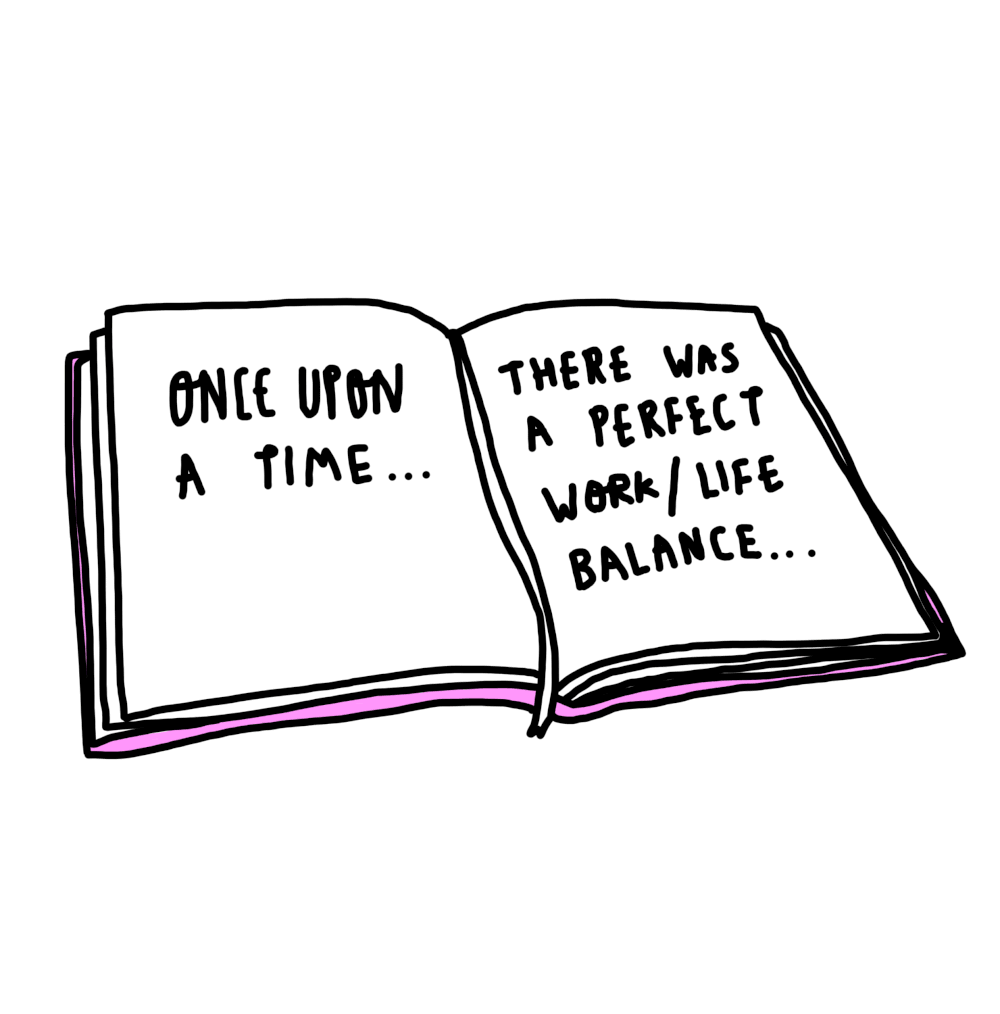 ONCE UPON
A TIME...
THERE WAS
A PERFECT
WORK/LIFE
BALANCE...